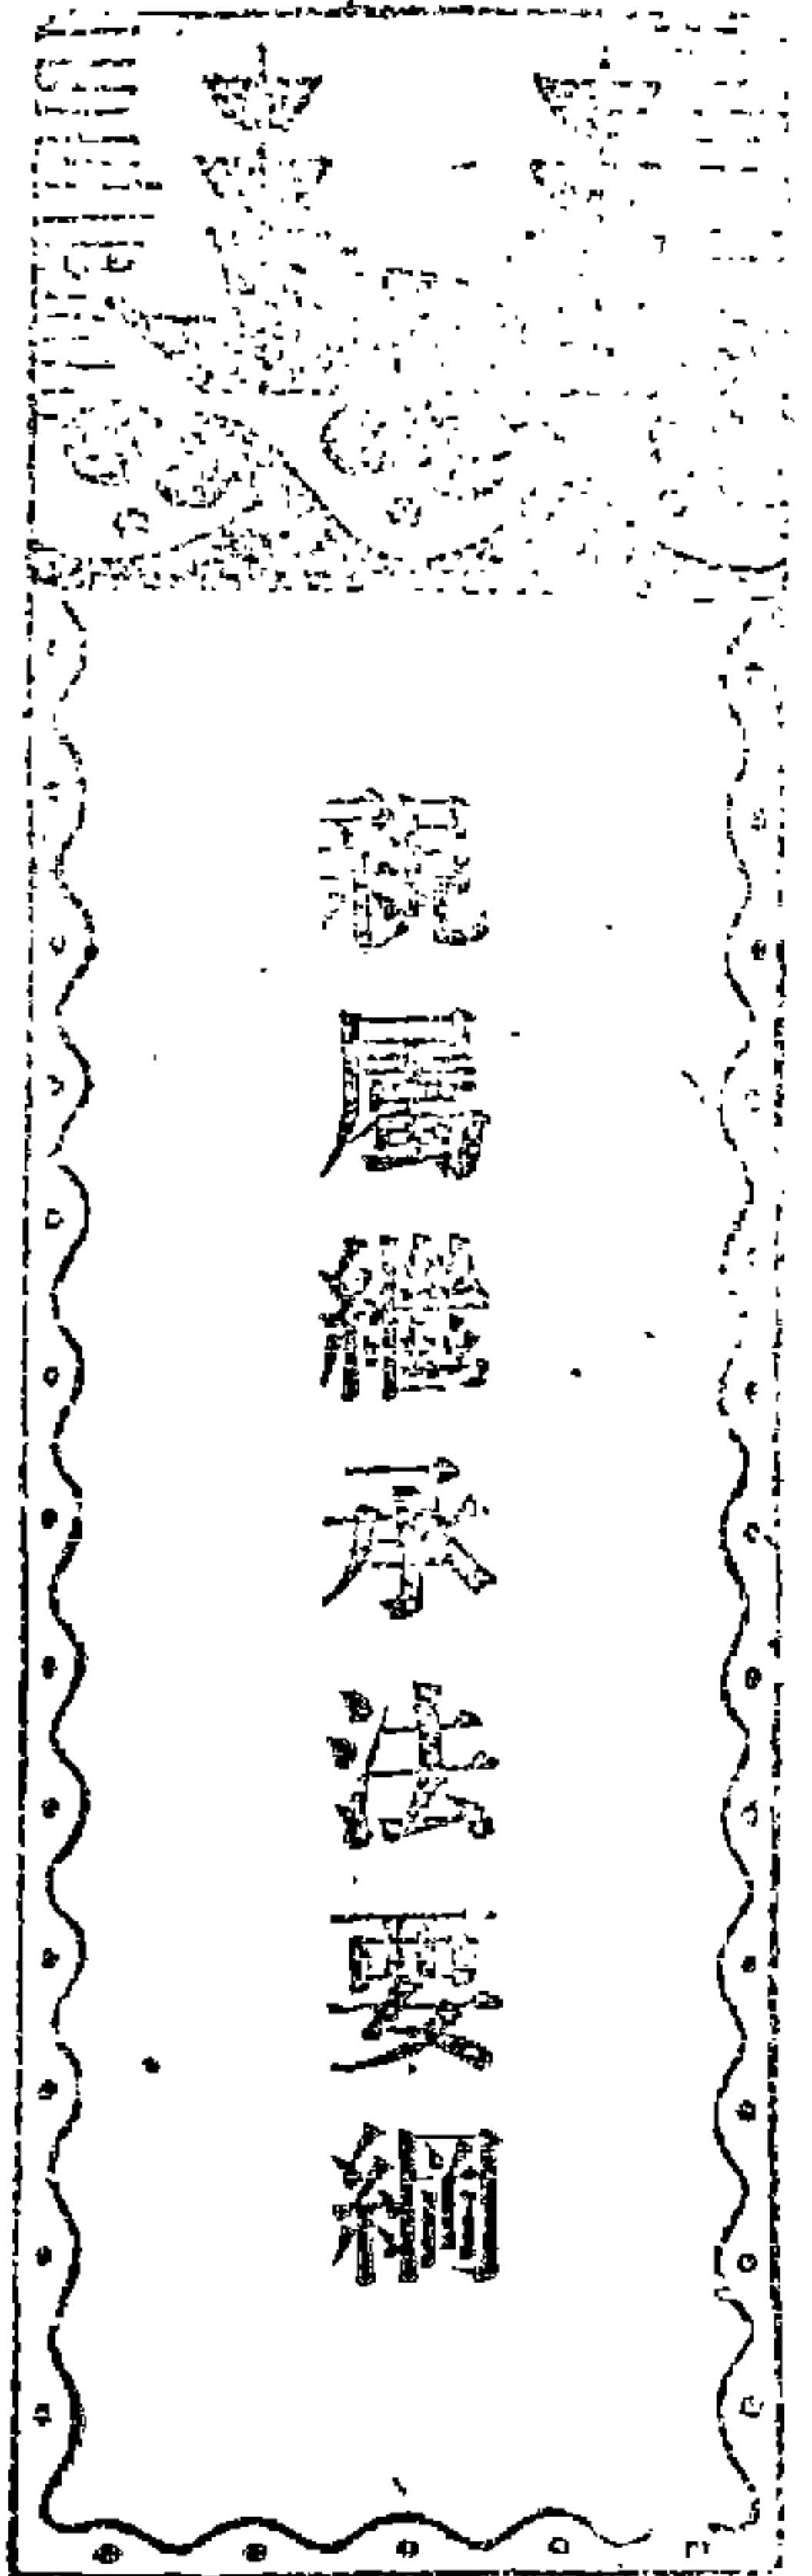 親屬繼承法要綱